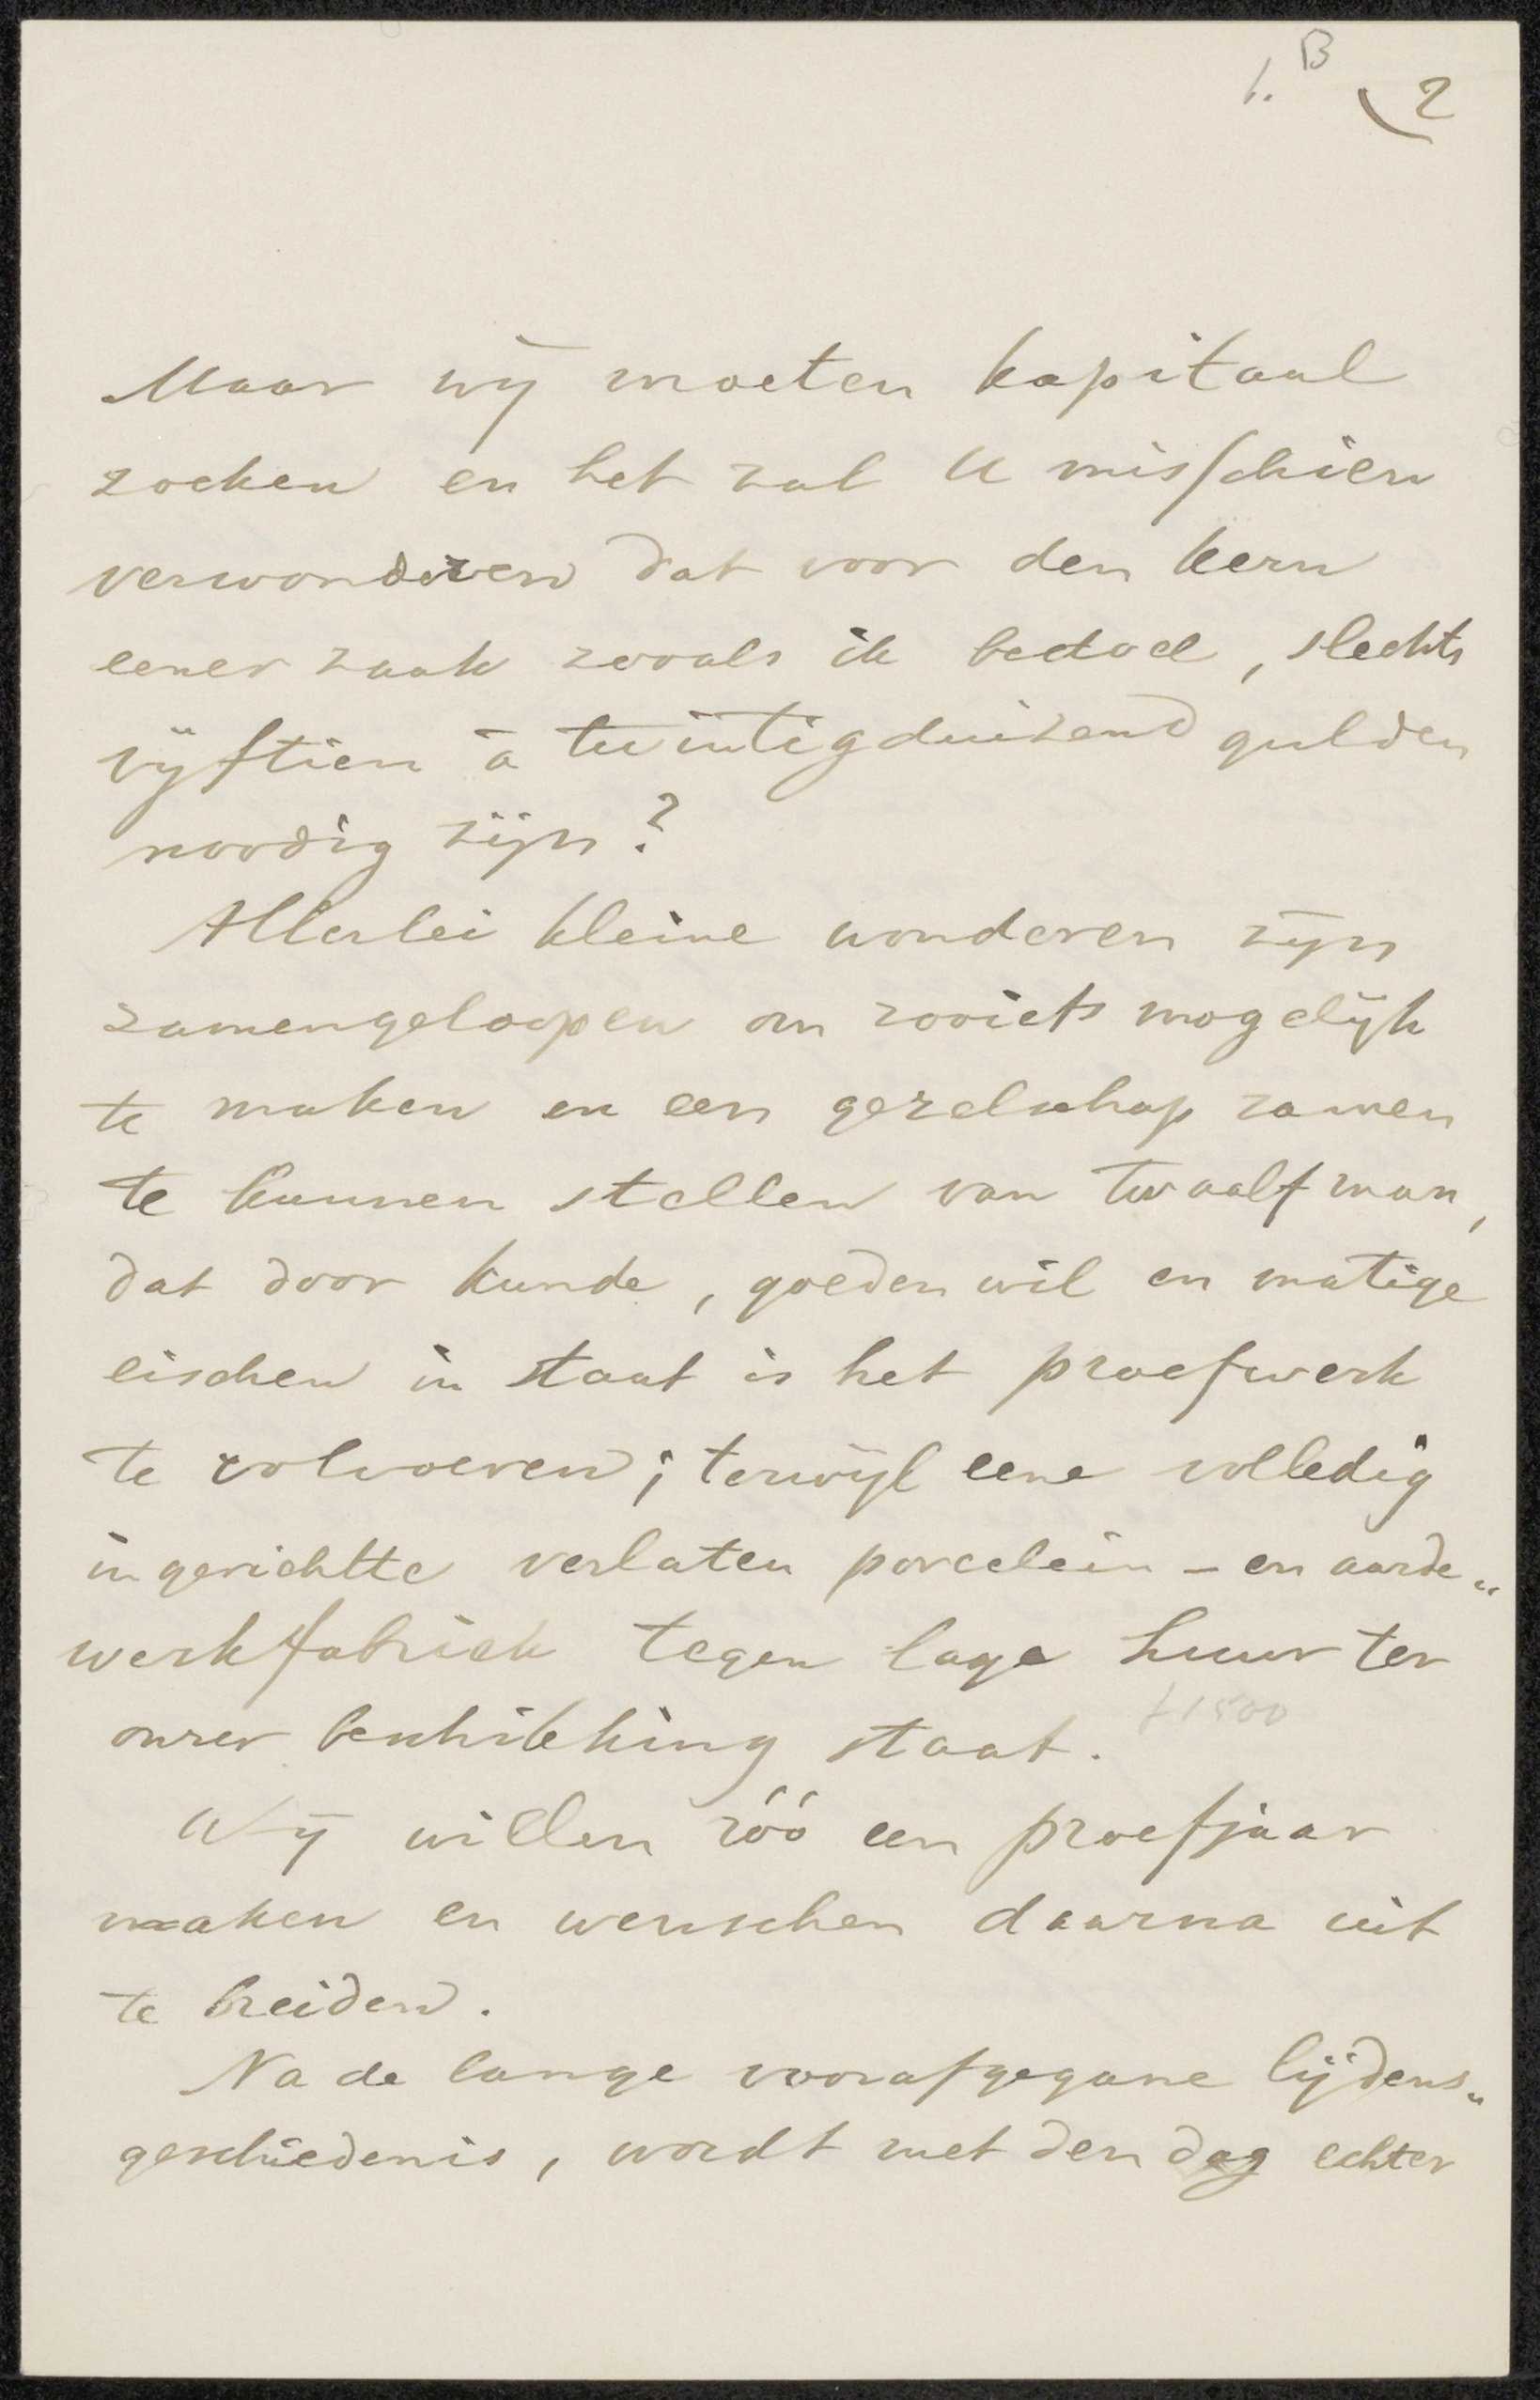 1. B 2
Maar wij moeten kapitaal
zoeken en het zal U misschien
verwonderen dat voor den kern
eener zaak zooals ik bedoel, slechts
vijftien à twintigduizend gulden
noodig zijn?
Allerlei kleine wonderen zijn
zamengeloopen om zooiets mogelijk
te maken en een gezelschap zamen
te kunnen stellen van twaalf man,
dat door kunde, goeden wil en matige
eischen in staat is het proefwerk
te volvoeren; terwijl eene volledig
ingerichtte verlaten porcelein - en aarde„
werkfabriek tegen lage huur ter
onzer beschikking staat. f1500
Wij willen zóó een proefjaar
maken en wenschen daarna uit
te breiden.
Na de lange voorafgegane lijdens„
geschiedenis, wordt met den dag echter